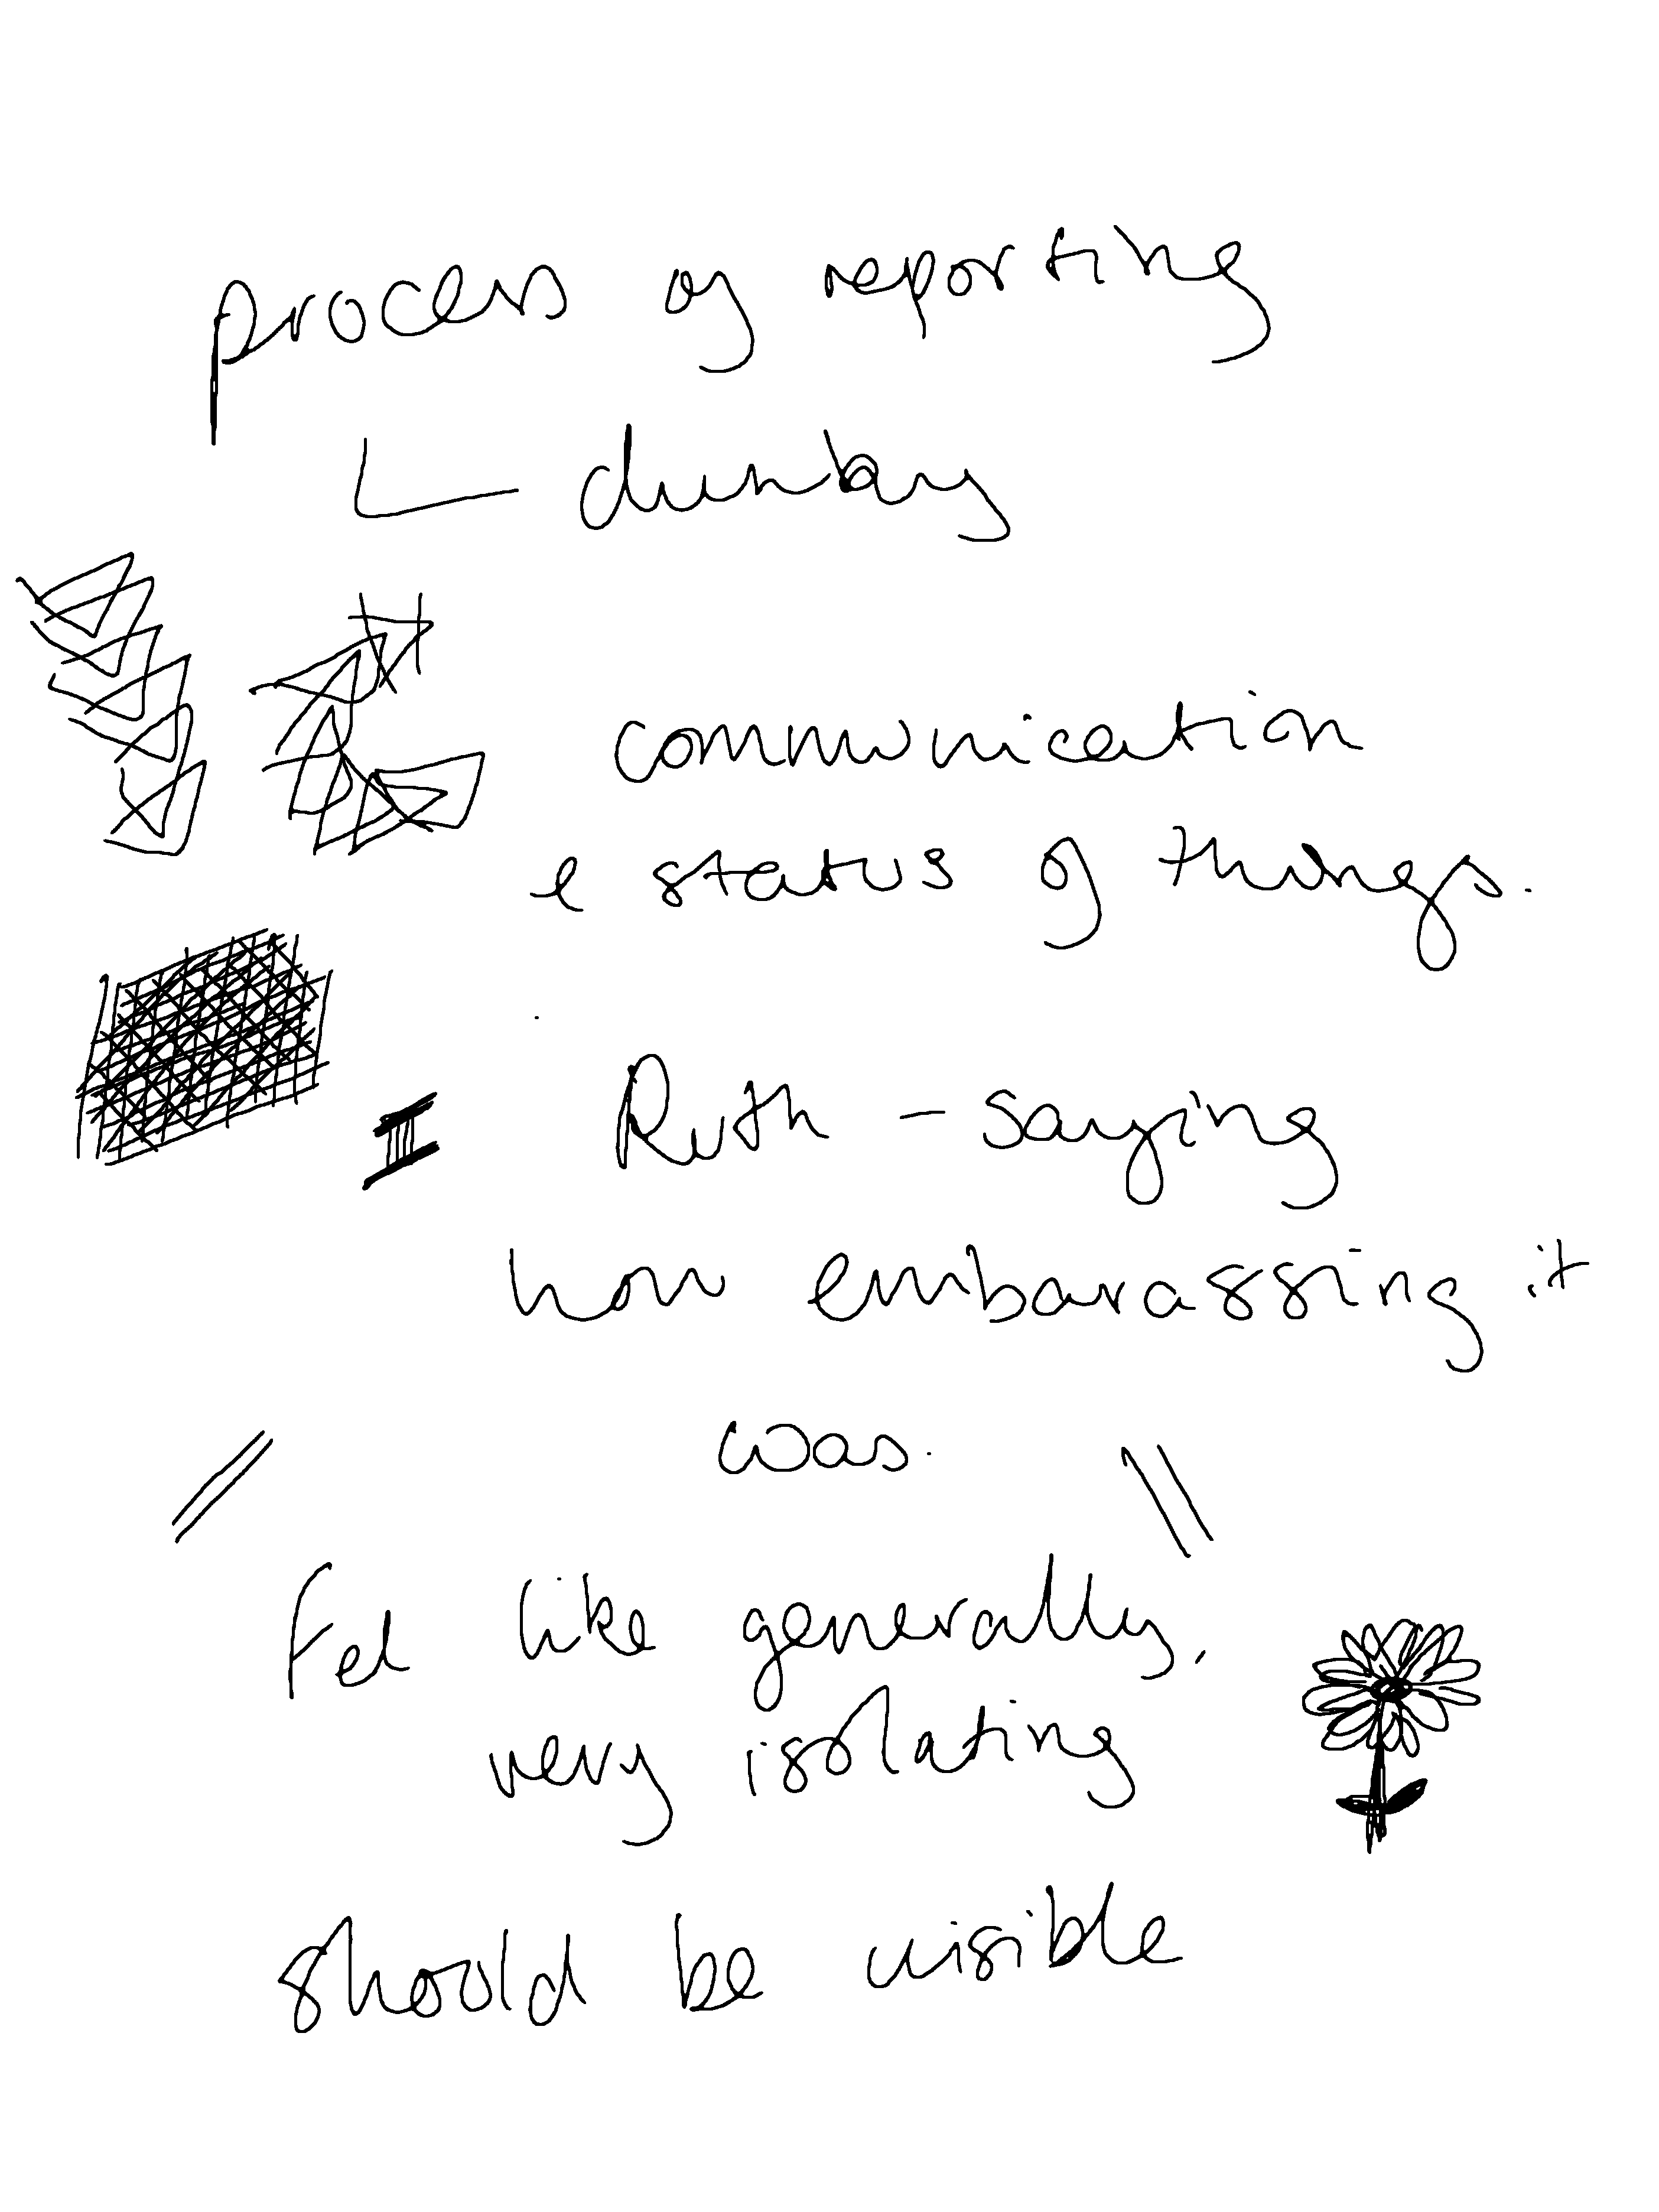 process of reporting
communication
e status of things.
Ruth - saying
how embarassing it
was.
Fel like generally,
very isolating
should be visible